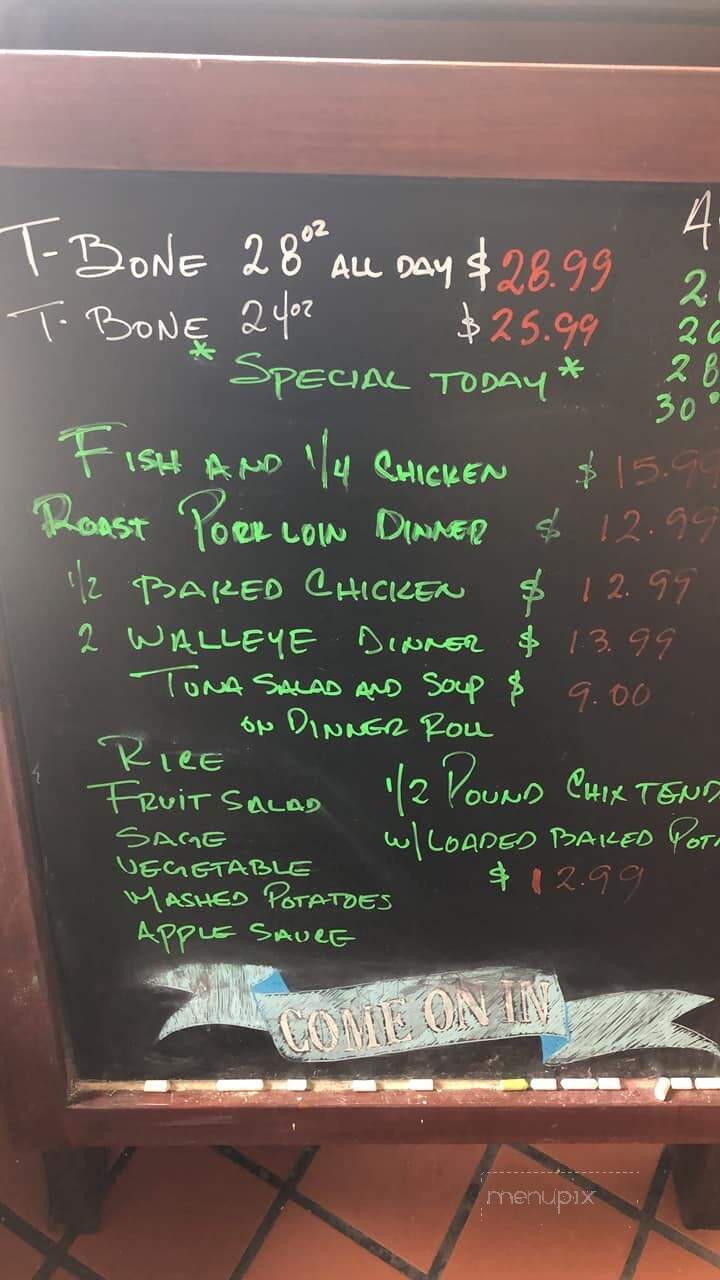 T-BONE 28oz ALL DAY $28.99
T-BONE 24oz $25.99
* SPECIAL TODAY *
FISH AND 1/4 CHICKEN $15.99
ROAST PORK LOIN DINNER $12.99
1/2 BAKED CHICKEN $12.99
2 WALLEYE DINNER $13.99
TUNA SALAD AND SOUP $9.00
ON DINNER ROLL
RICE
FRUIT SALAD
SAGE
VEGETABLE
MASHED POTATOES
APPLE SAUCE
1/2 POUND CHIX TEND
W/LOADED BAKED POT
$12.99
COME ON IN
menupix